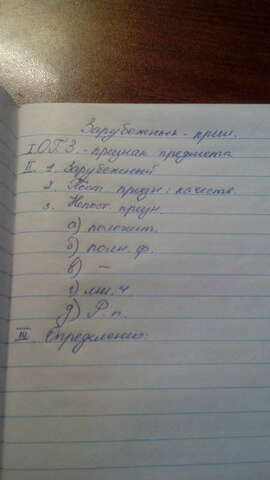 Зарубежных - прил.
I ОГЗ. - признак предмета
II. 1. Зарубежный
2. Пост. призн: качеств.
3. Непост. призн.
а) положит.
б) полн. ф.
в) —
г) мн. ч.
д) Р. п.
III Определение.